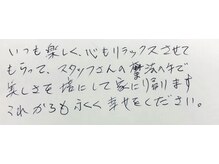 いつも楽しく、心もリラックスさせて
もらって、スタッフさんの魔法の手で
美しさを倍にして家に帰ります
これからも永く幸せをください。